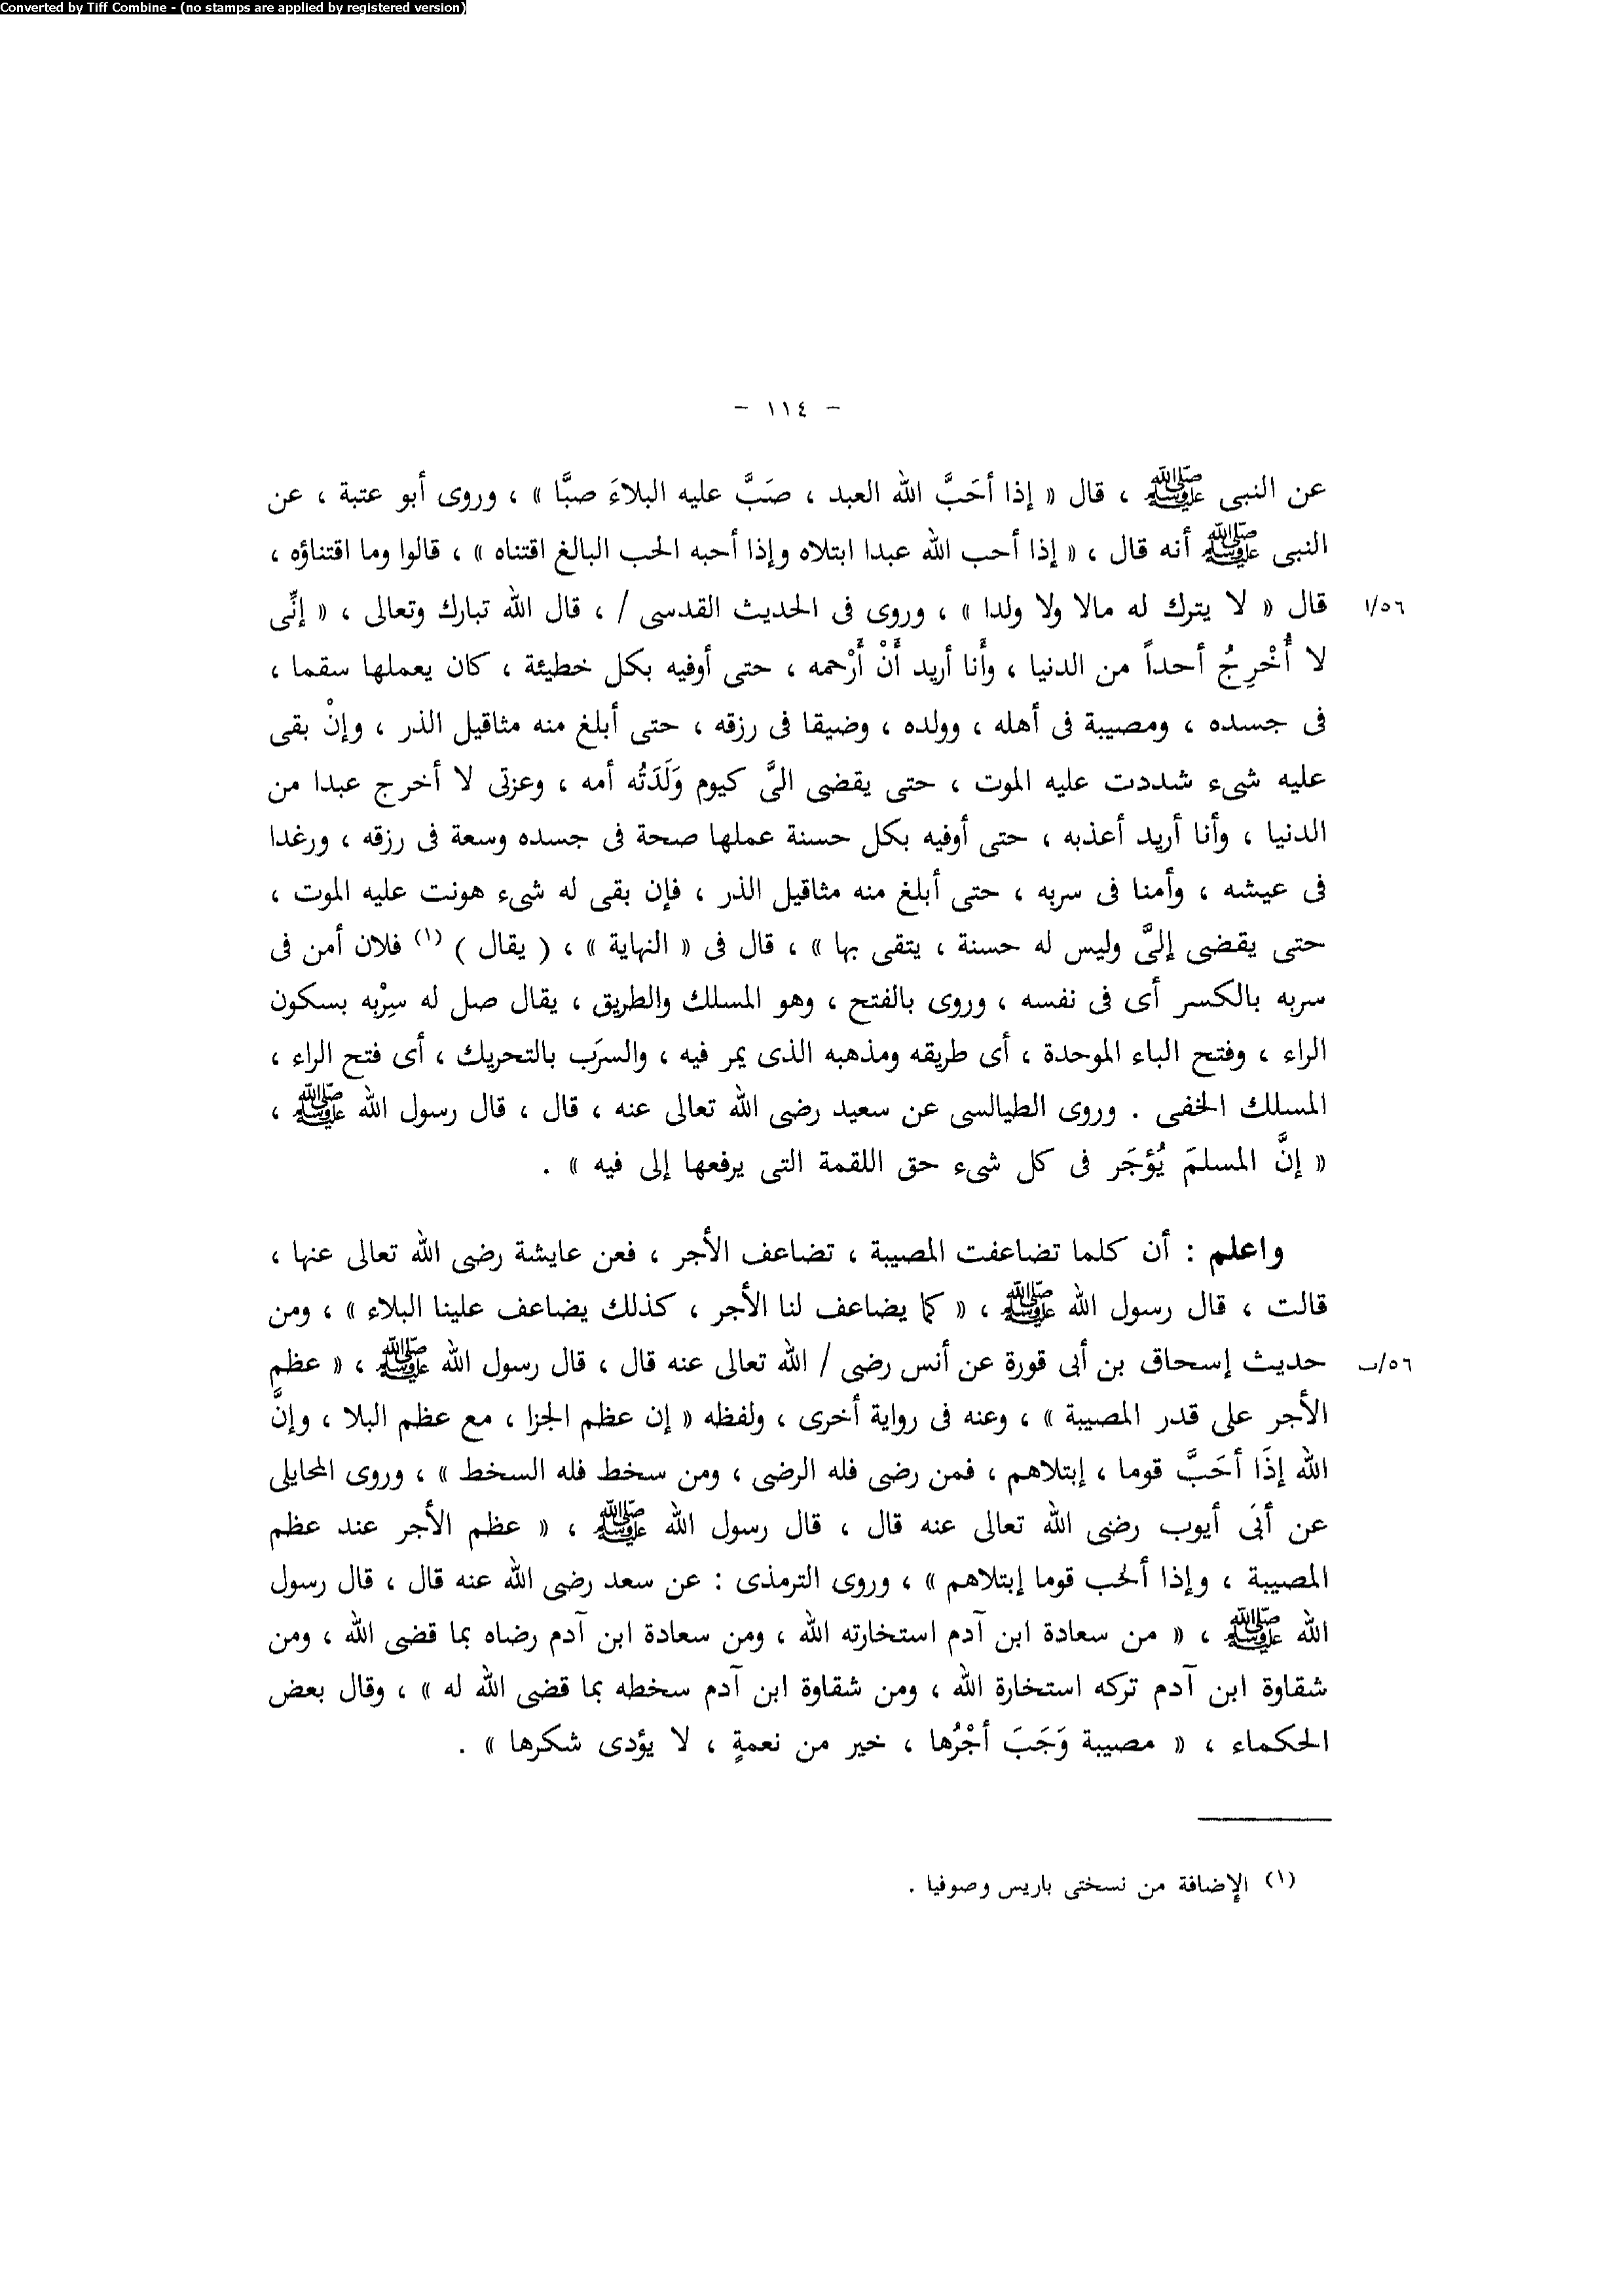 Converted by Tiff Combine - (no stamps are applied by registered version)
- ١١٤ -
عن النبى ﷺ ، قال « إذا أحَبَّ الله العبد ، صَبَّ عليه البلاءَ صبَّا » ، وروى أبو عتبة ، عن
النبى ﷺ أنه قال ، « إذا أحب الله عبدا ابتلاه وإذا أحبه الحب البالغ اقتناه » ، قالوا وما اقتناؤه ،
قال « لا يترك له مالا ولا ولدا » ، وروى فى الحديث القدسى / ، قال الله تبارك وتعالى ، « إنِّى
٥٦/ا
لا أُخْرِجُ أحداً من الدنيا ، وأَنا أريد أَنْ أَرْحمه ، حتى أوفيه بكل خطيئة ، كان يعملها سقما ،
فى جسده ، ومصيبة فى أهله ، وولده ، وضيقا فى رزقه ، حتى أبلغ منه مثاقيل الذر ، وإنْ بقى
عليه شىء شددت عليه الموت ، حتى يقضى الىَّ كيوم وَلَدَتُه أمه ، وعزتى لا أخرج عبدا من
الدنيا ، وأنا أريد أعذبه ، حتى أوفيه بكل حسنة عملها صحة فى جسده وسعة فى رزقه ، ورغدا
فى عيشه ، وأمنا فى سربه ، حتى أبلغ منه مثاقيل الذر ، فإن بقى له شىء هونت عليه الموت ،
حتى يقضى إلىَّ وليس له حسنة ، يتقى بها » ، قال فى « النهاية » ، ( يقال ) (١) فلان أمن فى
سربه بالكسر أى فى نفسه ، وروى بالفتح ، وهو المسلك والطريق ، يقال صل له سِرْبه بسكون
الراء ، وفتح الباء الموحدة ، أى طريقه ومذهبه الذى يمر فيه ، والسرَب بالتحريك ، أى فتح الراء ،
المسلك الخفى . وروى الطيالسى عن سعيد رضى الله تعالى عنه ، قال ، قال رسول الله ﷺ ،
« إنَّ المسلمَ يُؤجَر فى كل شىء حق اللقمة التى يرفعها إلى فيه » .
واعلم : أن كلما تضاعفت المصيبة ، تضاعف الأجر ، فعن عايشة رضى الله تعالى عنها ،
قالت ، قال رسول الله ﷺ ، « كما يضاعف لنا الأجر ، كذلك يضاعف علينا البلاء » ، ومن
حديث إسحاق بن أبى قورة عن أنس رضى / الله تعالى عنه قال ، قال رسول الله ﷺ ، « عظم
٥٦/ب
الأجر على قدر المصيبة » ، وعنه فى رواية أخرى ، ولفظه « إن عظم الجزا ، مع عظم البلا ، وإنَّ
الله إذَا أحَبَّ قوما ، إبتلاهم ، فمن رضى فله الرضى ، ومن سخط فله السخط » ، وروى المحايلى
عن أبَى أيوب رضى الله تعالى عنه قال ، قال رسول الله ﷺ ، « عظم الأجر عند عظم
المصيبة ، وإذا ألحب قوما إبتلاهم » ، وروى الترمذى : عن سعد رضى الله عنه قال ، قال رسول
الله ﷺ ، « من سعادة ابن آدم استخارته الله ، ومن سعادة ابن آدم رضاه بما قضى الله ، ومن
شقاوة ابن آدم تركه استخارة الله ، ومن شقاوة ابن آدم سخطه بما قضى الله له » ، وقال بعض
الحكماء ، « مصيبة وَجَبَ أجْرُها ، خير من نعمةٍ ، لا يؤدى شكرها » .
(١) الإضافة من نسختى باريس وصوفيا .